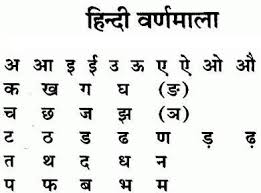 हिन्दी वर्णमाला
अ आ इ ई उ ऊ ए ऐ ओ औ
क ख ग घ (ङ)
च छ ज झ (ञ)
ट ठ ड ढ ण ड़ ढ़
त थ द ध न
प फ ब भ म